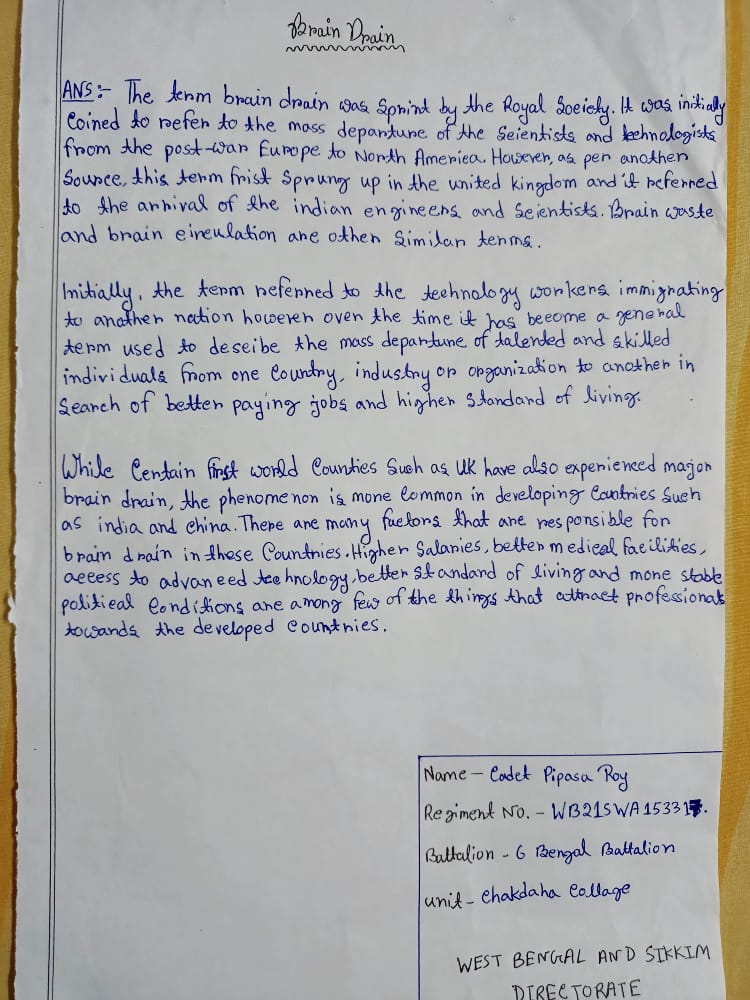 Brain Drain
ANS:- The term brain drain was Sprint by the Royal Society. It was initially
Coined to refer to the mass departure of the Scientists and technologists
from the post-war Europe to North America. However, as per another
Source, this term frist Sprung up in the united kingdom and it referred
to the arrival of the indian engineers and Scientists. Brain waste
and brain circulation are other Similar terms.
Initially, the term referred to the technology workers immigrating
to another nation however over the time it has become a general
term used to descibe the mass departure of talented and skilled
individuals from one Country, industry or organization to another in
Search of better paying jobs and higher Standard of living.
While Certain first world Counties Such as UK have also experienced major
brain drain, the phenomenon is more Common in developing Countries Such
as india and china. There are many factors that are responsible for
brain drain in these Countries. Higher Salaries, better medical facilities,
access to advanced technology, better standard of living and more stable
political Conditions are among few of the things that attract professionals
towards the developed countries.
Name - Cadet Pipasa Roy
Regiment No. - WB21SWA153317.
Battalion - 6 Bengal Battalion
unit - Chakdaha Collage
WEST BENGAL AND SIKKIM
DIRECTORATE